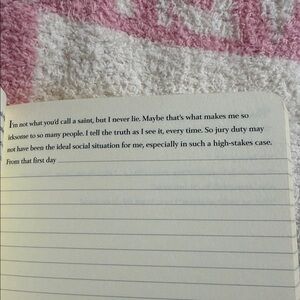 I'm not what you'd call a saint, but I never lie. Maybe that's what makes me so
irksome to so many people. I tell the truth as I see it, every time. So jury duty may
not have been the ideal social situation for me, especially in such a high-stakes case.
From that first day